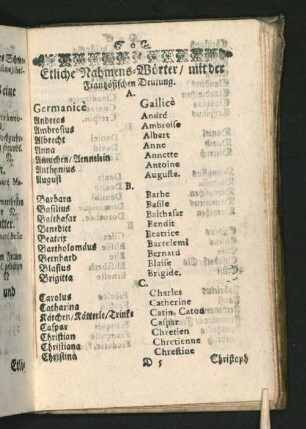 Etliche Nahmens-Wörter / mit der
Französischen Deutung.
A.
Germanicè Gallicè
Andreas André
Ambrosius Ambroise
Albrecht Albert
Anna Anne
Annichen/Aennelein Annette
Anthonius Antoine
August Auguste.
B.
Barbara Barbe
Basilius Basile
Balthasar Balthasar
Benedict Bendit
Beatrix Beatrice
Bartholomäus Bartelemi
Bernhard Bernard
Blasius Blaise
Brigitta Brigide.
C.
Carolus Charles
Catharina Catherine
Kätchen/Kötterle/Trinke Catin, Caton
Caspar Caspar
Christian Chretien
Christiana Chretienne
Christina Chrestine
D 5 Christoph